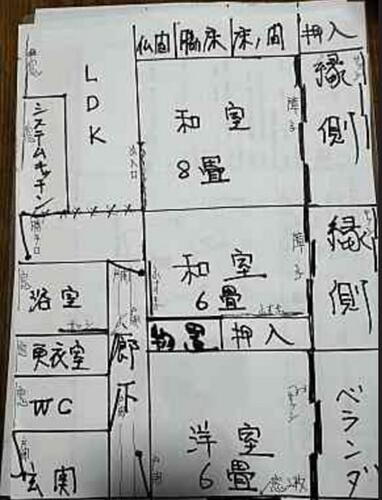 仏間
脇床
床ノ間
押入
窓
LDK
システムキッチン
出入口
和室
8畳
障子
縁側
勝手口
和室
6畳
障子
縁側
窓
浴室
廊下
物置
押入
更衣室
窓
WC
玄関
洋室
6畳
ベランダ